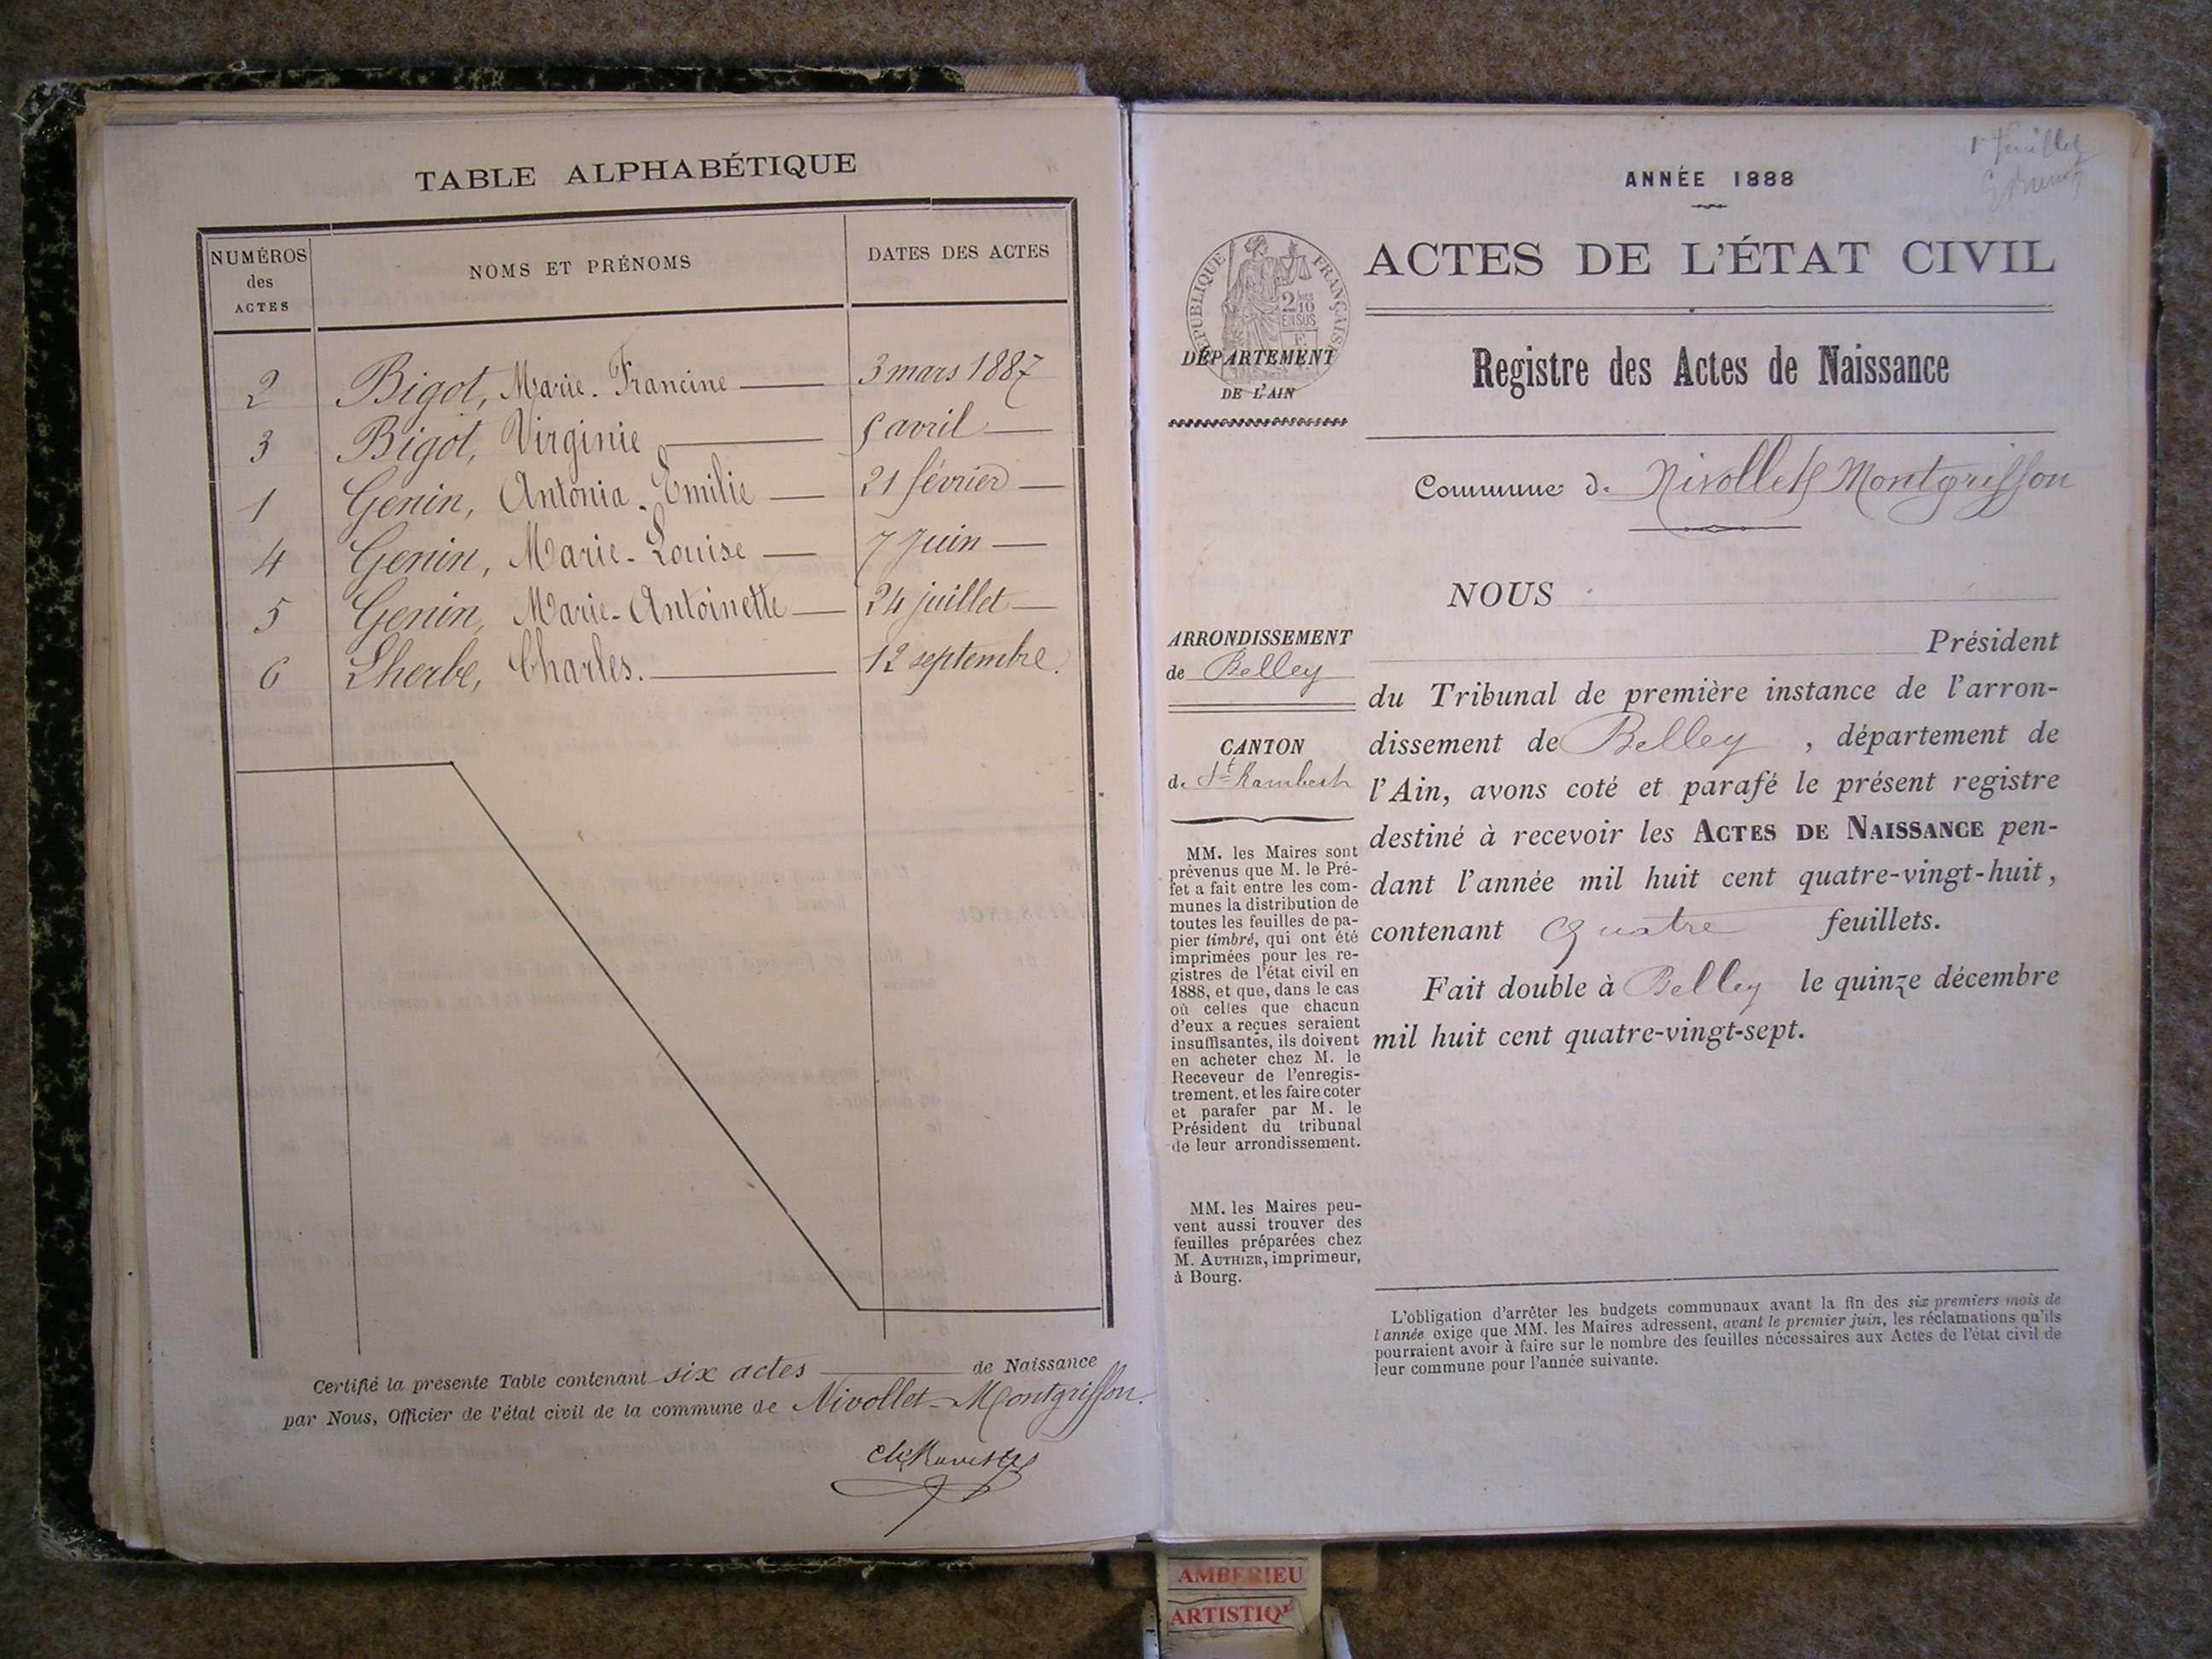 TABLE ALPHABÉTIQUE
NUMÉROS des ACTES
NOMS ET PRÉNOMS
DATES DES ACTES
2 Bigot, Marie-Francine 3 mars 1887
3 Bigot, Virginie 5 avril
1 Genin, Antonia-Emilie 21 février
4 Genin, Marie-Louise 7 Juin
5 Genin, Marie-Antoinette 24 juillet
6 Lherbe, Charles. 12 septembre.
Certifié la presente Table contenant six actes de Naissance
par Nous, Officier de l'état civil de la commune de Nivollet-Montgriffon.
1r feuillet
ANNÉE 1888
RÉPUBLIQUE FRANÇAISE
2 fres
10
EN SUS
DÉPARTEMENT
DE L'AIN
ACTES DE L'ÉTAT CIVIL
Registre des Actes de Naissance
Commune de Nivollet Montgriffon
ARRONDISSEMENT
de Belley
CANTON
de St Rambert
MM. les Maires sont
prévenus que M. le Pré-
fet a fait entre les com-
munes la distribution de
toutes les feuilles de pa-
pier timbré, qui ont été
imprimées pour les re-
gistres de l'état civil en
1888, et que, dans le cas
où celles que chacun
d'eux a reçues seraient
insuffisantes, ils doivent
en acheter chez M. le
Receveur de l'enregis-
trement, et les faire coter
et parafer par M. le
Président du tribunal
de leur arrondissement.
MM. les Maires peu-
vent aussi trouver des
feuilles préparées chez
M. AUTHIER, imprimeur,
à Bourg.
NOUS
Président
du Tribunal de première instance de l'arron-
dissement de Belley, département de
l'Ain, avons coté et parafé le présent registre
destiné à recevoir les ACTES DE NAISSANCE pen-
dant l'année mil huit cent quatre-vingt-huit,
contenant quatre feuillets.
Fait double à Belley le quinze décembre
mil huit cent quatre-vingt-sept.
L'obligation d'arrêter les budgets communaux avant la fin des six premiers mois de
l'année exige que MM. les Maires adressent, avant le premier juin, les réclamations qu'ils
pourraient avoir à faire sur le nombre des feuilles nécessaires aux Actes de l'état civil de
leur commune pour l'année suivante.
AMBERIEU
ARTISTIQ